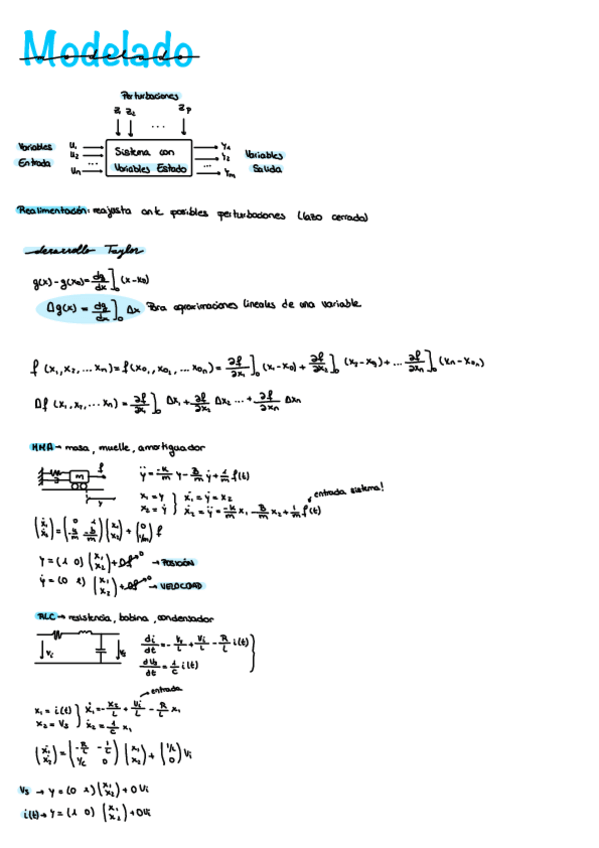 Modelado
modelado
Perturbaciones
Z₁ Z₂ ... Zp
Variables Entrada
u₁
u₂
...
un
Sistema con
Variables Estado
Y₁
Y₂
...
Ym
Variables Salida
Realimentación: reajusta ante posibles perturbaciones (lazo cerrado)
desarrollo Taylor
g(x) - g(x₀) = dg/dx]₀ (x - x₀)
Δg(x) = dg/dx]₀ Δx Para aproximaciones lineales de una variable
f (x₁, x₂, ... xn) = f(x₀₁, x₀₂, ... x₀n) = ∂f/∂x₁]₀ (x₁ - x₀) + ∂f/∂x₂]₀ + ... ∂f/∂xn]₀ (xn - x₀n)
Δf (x₁, x₂, ... xn) = ∂f/∂x₁]₀ Δx₁ + ∂f/∂x₂ Δx₂ ... + ∂f/∂xn Δxn
MMA → masa, muelle, amortiguador
m f
y
ÿ = -k/m y - B/m ẏ + 1/m f(t)
entrada sistema!
x₁ = y } ẋ₁ = ẏ = x₂
x₂ = ẏ } ẋ₂ = ÿ = -k/m x₁ - B/m x₂ + 1/m f(t)
(ẋ₁ ẋ₂) = (0 1 -k/m -b/m) (x₁ x₂) + (0 1/m) f
y = (1 0) (x₁ x₂) + Df →0 → POSICIÓN
ẏ = (0 1) (x₁ x₂) + Df →0 → VELOCIDAD
RLC → resistencia, bobina, condensador
Vi Vs
di/dt = - Vs/L + Vi/L - R/L i(t)
dVs/dt = 1/C i(t)
entrada
x₁ = i(t) } ẋ₁ = - x₂/L + Vi/L - R/L x₁
x₂ = Vs } ẋ₂ = 1/C x₁
(ẋ₁ ẋ₂) = (-R/L -1/L 1/C 0) (x₁ x₂) + (1/L 0) Vi
Vs → y = (0 1) (x₁ x₂) + 0 Vi
i(t) → y = (1 0) (x₁ x₂) + 0Vi